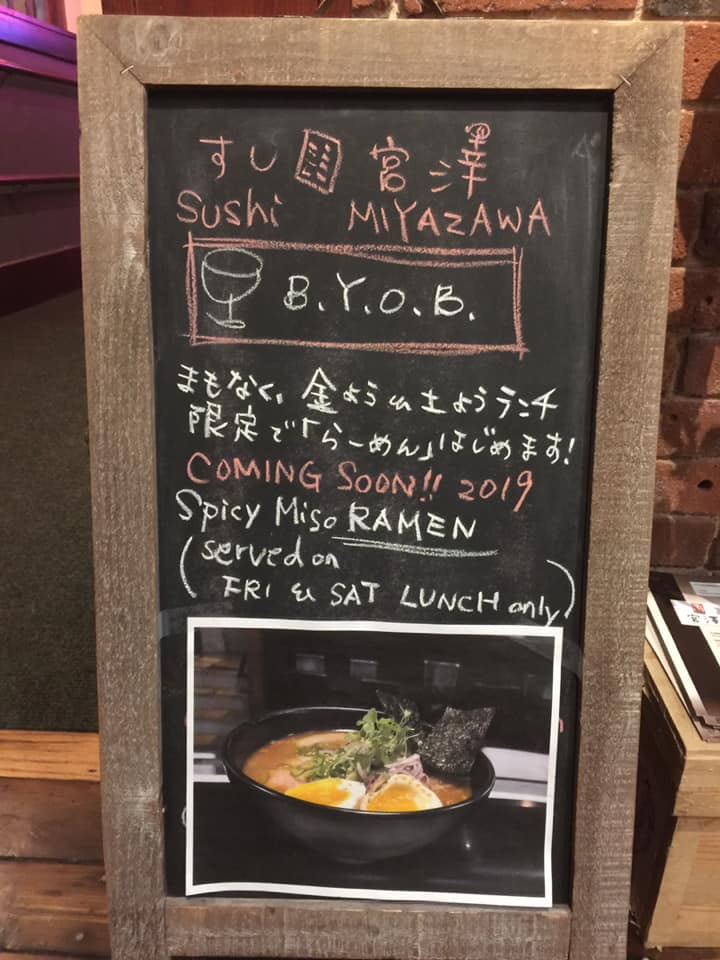 すし 宮澤
Sushi MIYAZAWA
B.Y.O.B.
まもなく、金よう&土ようランチ
限定で「らーめん」はじめます!
COMING SOON!! 2019
Spicy Miso RAMEN
(served on
FRI & SAT LUNCH only)